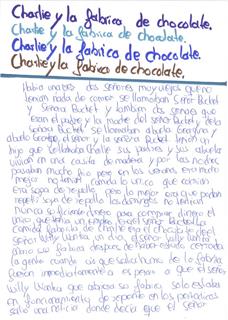 Charlie y la fabrica de chocolate.
Charlie y la fabrica de chocolate.
Charlie y la fabrica de chocolate.
Charlie y la fabrica de chocolate.
Habia una vez dos señores muy viejos que no
tenian nada de comer se llamaban Señor Bucket
y Señora Bucket y tambien dos señores que
eran el padre y la madre del señor Bucket de la
señora Bucket se llamaban abuela Georgina y
abuelo George, el señor y la señora Bucket tenian un
hijo que se llamaba Charlie sus padres y sus abuelos
vivian en una casita de madera y por las noches
pasaban mucho frio pero en los veranos era mucho
mejor no tenian comida lo unico que comian
era sopa de repollo pero lo mejor era que podian
repetir sopa de repollo los domingos no tenian
nunca suficiente dinero para comprar dinero el
unico que tenia un empleo era el señor Bucket la
comida favorita de Charlie era el chocolate del
señor Willy Wonka un dia, el señor Willy Wonka
abrio su fabrica despues de haber estado cerrada
la gente cuando vio que salia humo de la fabrica
fueron inmediatamente a esperar a que el señor
Willy Wonka que abriese su fabrica solo estaba
en funcionamiento de repente en los periodicos
salio una noticia donde decia que el señor